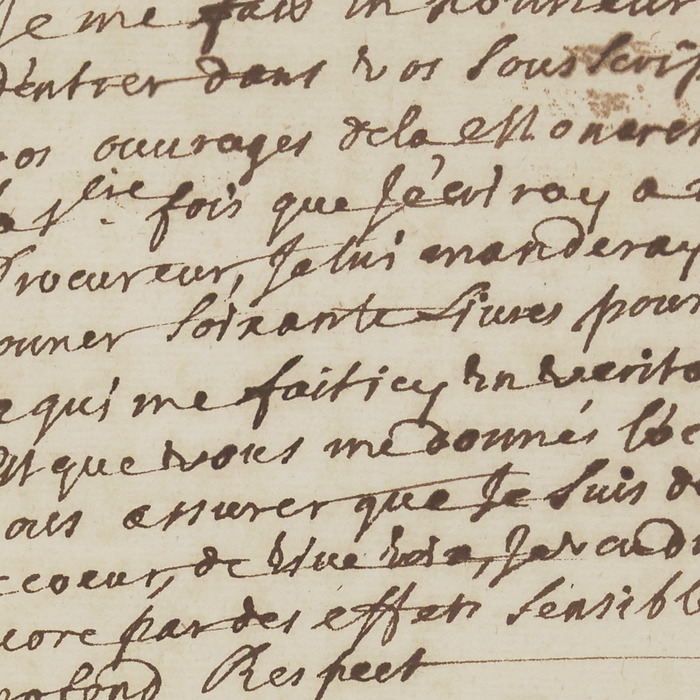 Je me fais un honneur
d'entrer dans vos souscrip
vos ouvrages dela Monarch
la 1ere fois que J'écriray a
Procureur, Je lui manderay
donner soixante Livres pour
ce qui me fait icy un verita
est que vous me donnés l'oc
vous assurer que Je suis de
coeur, de vive voix, Je voud
core par des effets sensibl
profond Respect